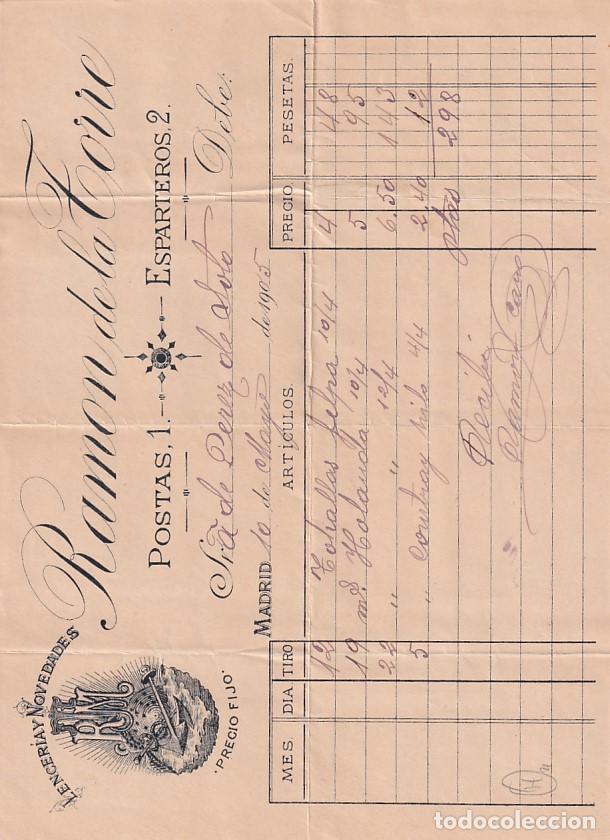 LENCERIA Y NOVEDADES
PRECIO FIJO
Ramon de la Torre
POSTAS, 1. ESPARTEROS, 2.
Sra de Perez de Soto Debe:
MADRID 10 de Mayo de 1905
MES. DIA TIRO ARTÍCULOS PRECIO PESETAS.
12 Tohallas felpa 10/4 4 48
19 ms Holanda 10/4 5 95
22 " " 12/4 6.50 143
5 " hilo 4/4 2.40 12
ptas 298
Recibí
Ramon
todocoleccion